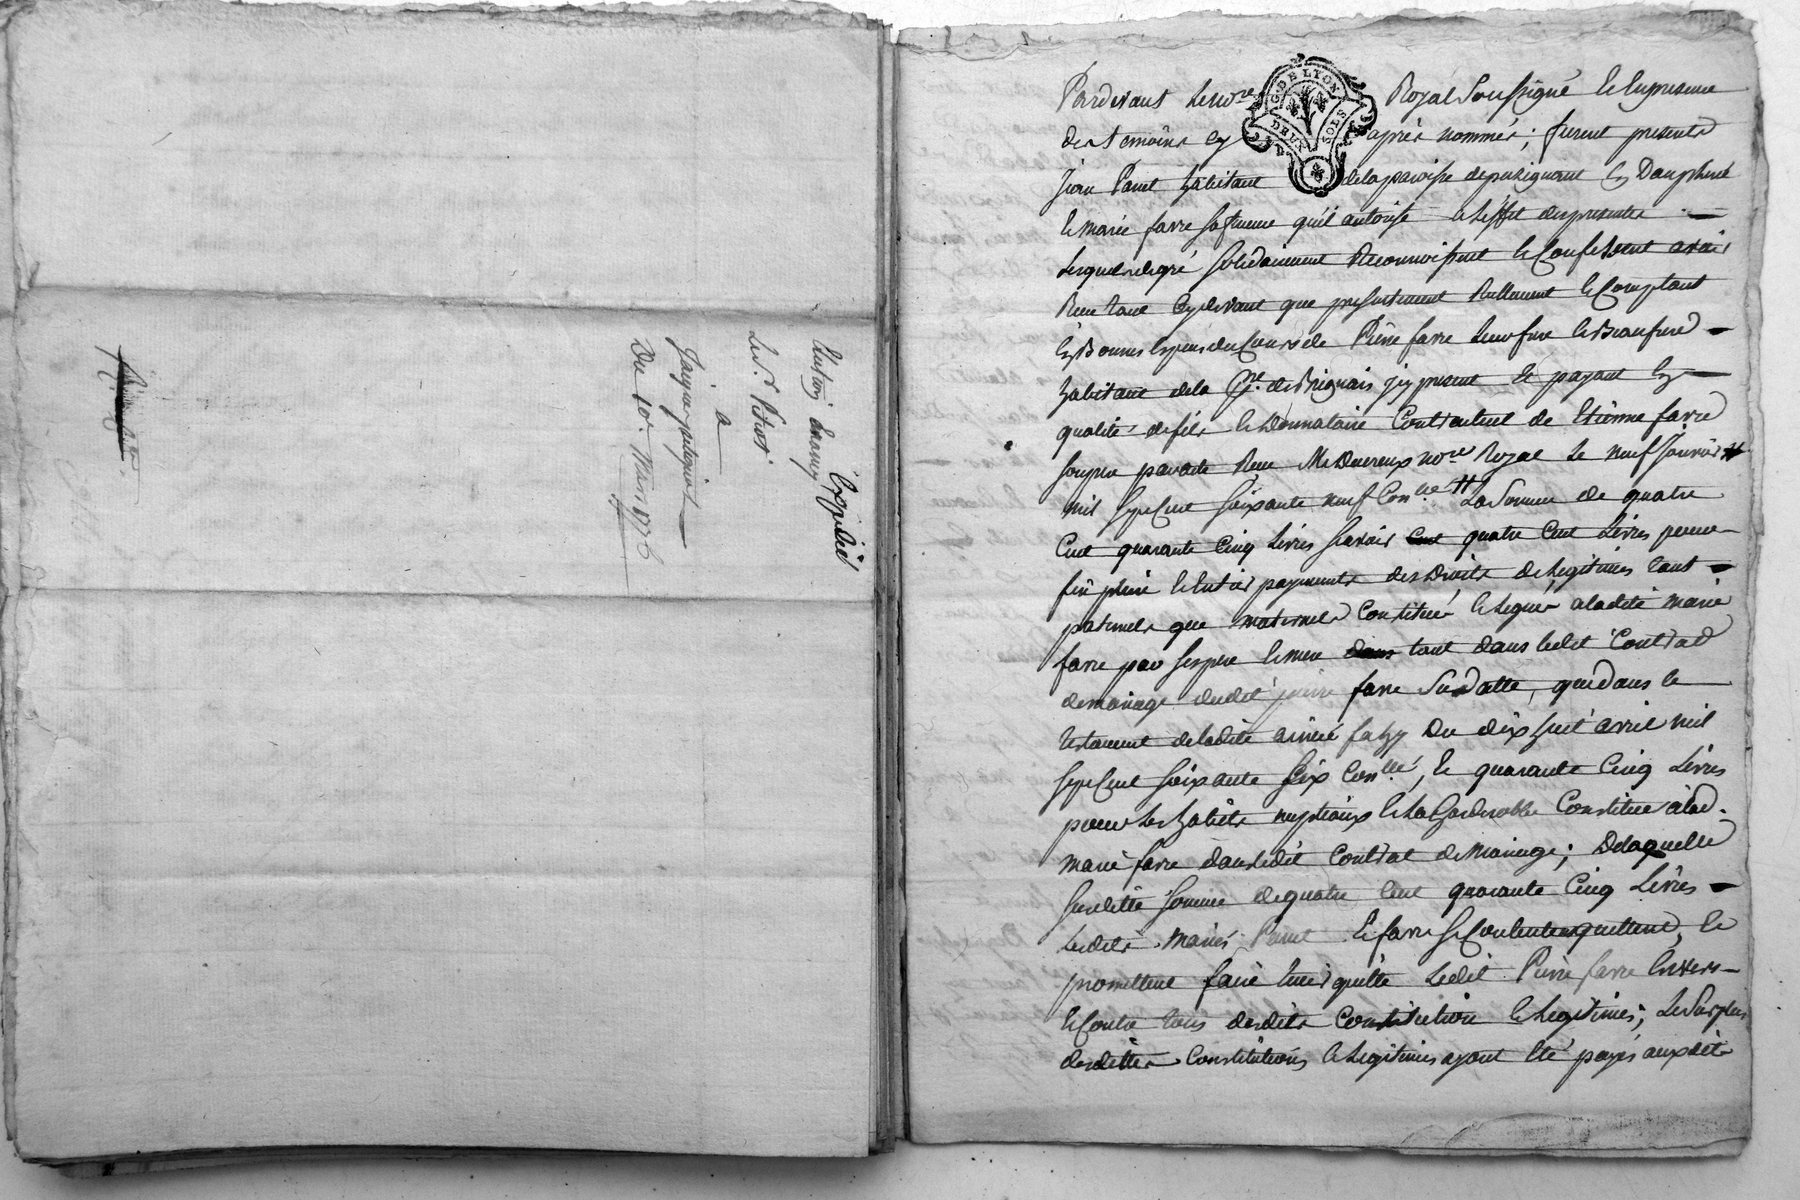 Expédié
Le Sr.
a
Du 10e. Mars 1776
G. DE LYON
DEUX SOLS
Pardevant le no.re Royal Soussigné & en presence
des temoins cy après nommés; furent presents
Jean habitant de la paroisse de pusignant en Dauphiné
& marie favre sa femme qu'il autorise a l'effet des presentes
Lesquels de gré solidairement Reconnoissent & Confessent avoir
Receu tant Cy devant que presentement Reellement & Comptant
En Bonnes Especes du Cours de Pierre favre leur frere & Beaufrere
habitant de la p.sse de Brignais icy present & payant En
qualité de fils & Donnataire Contractuel de Etienne favre
son pere par acte Receu Me Devereux no.re Royal le neuf Janvier
mil sept Cent soixante neuf Con.llé La Somme de quatre
Cent quarante Cinq Livres scavoir quatre Cent Livres pour
fin pleine & Entier payements des Droits de Legitimes tant
paternels que maternels Constitués & Legués a ladite marie
favre par ses pere & mere tant dans ledit Contrat
de mariage dudit pierre favre Susdatté, que dans le
testament de ladite aimée fahy Du dix huit avril mil
sept Cent soixante six Con.llé, & quarante Cinq Livres
pour les habits nuptiaux & La Garderobbe Constitué a lad.
marie favre dans ledit Contrat de Mariage; De laquelle
susditte somme de quatre Cent quarante Cinq Livres
lesdits mariés & favre se Contentent quittent, &
promettent faire tenir quitte ledit Pierre favre Envers
& Contre tous desdits Constitution & Legitimes; Le Surplus
desdittes Constitutions & Legitimes ayant Eté payés auxdits